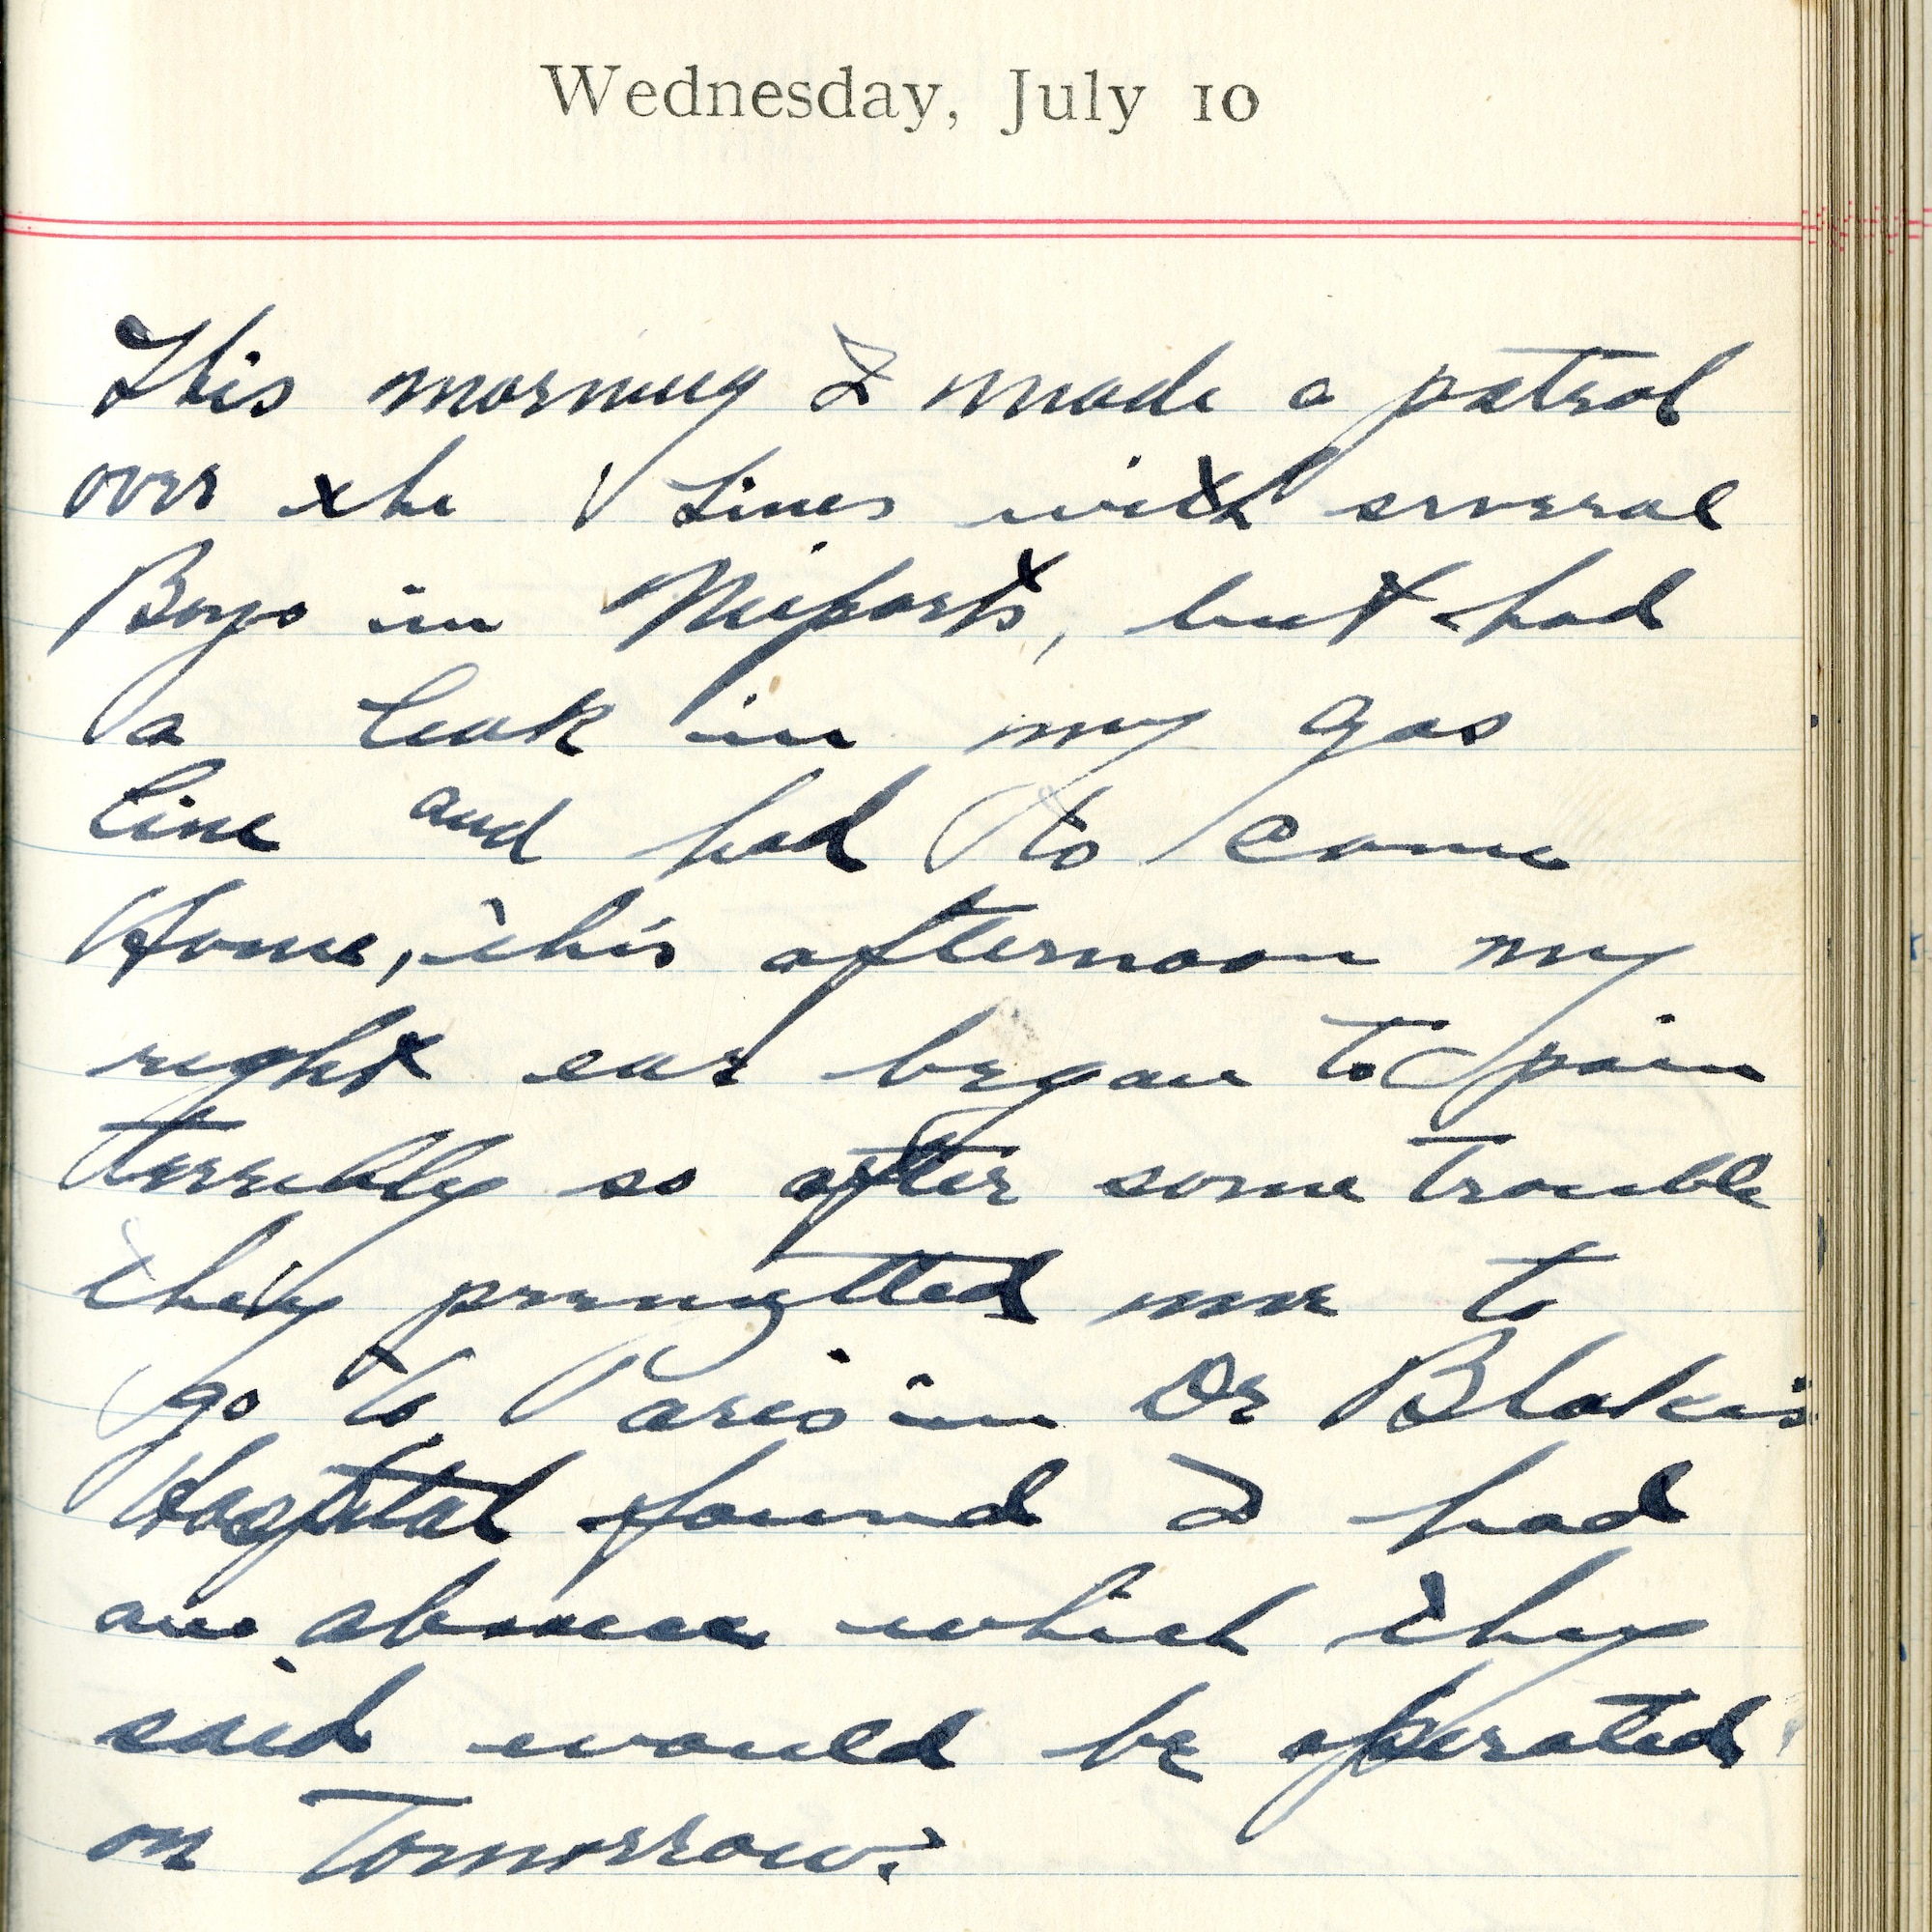 Wednesday, July 10
This morning I made a patrol
over the Lines with several
Boys in Nieports, but had
a leak in my gas
line and had to come
Home, this afternoon my
right ear began to pain
terribly so after some trouble
they permitted me to
go to Paris in Dr Blake's
Hospital found I had
an which they
said would be operated
on Tomorrow.